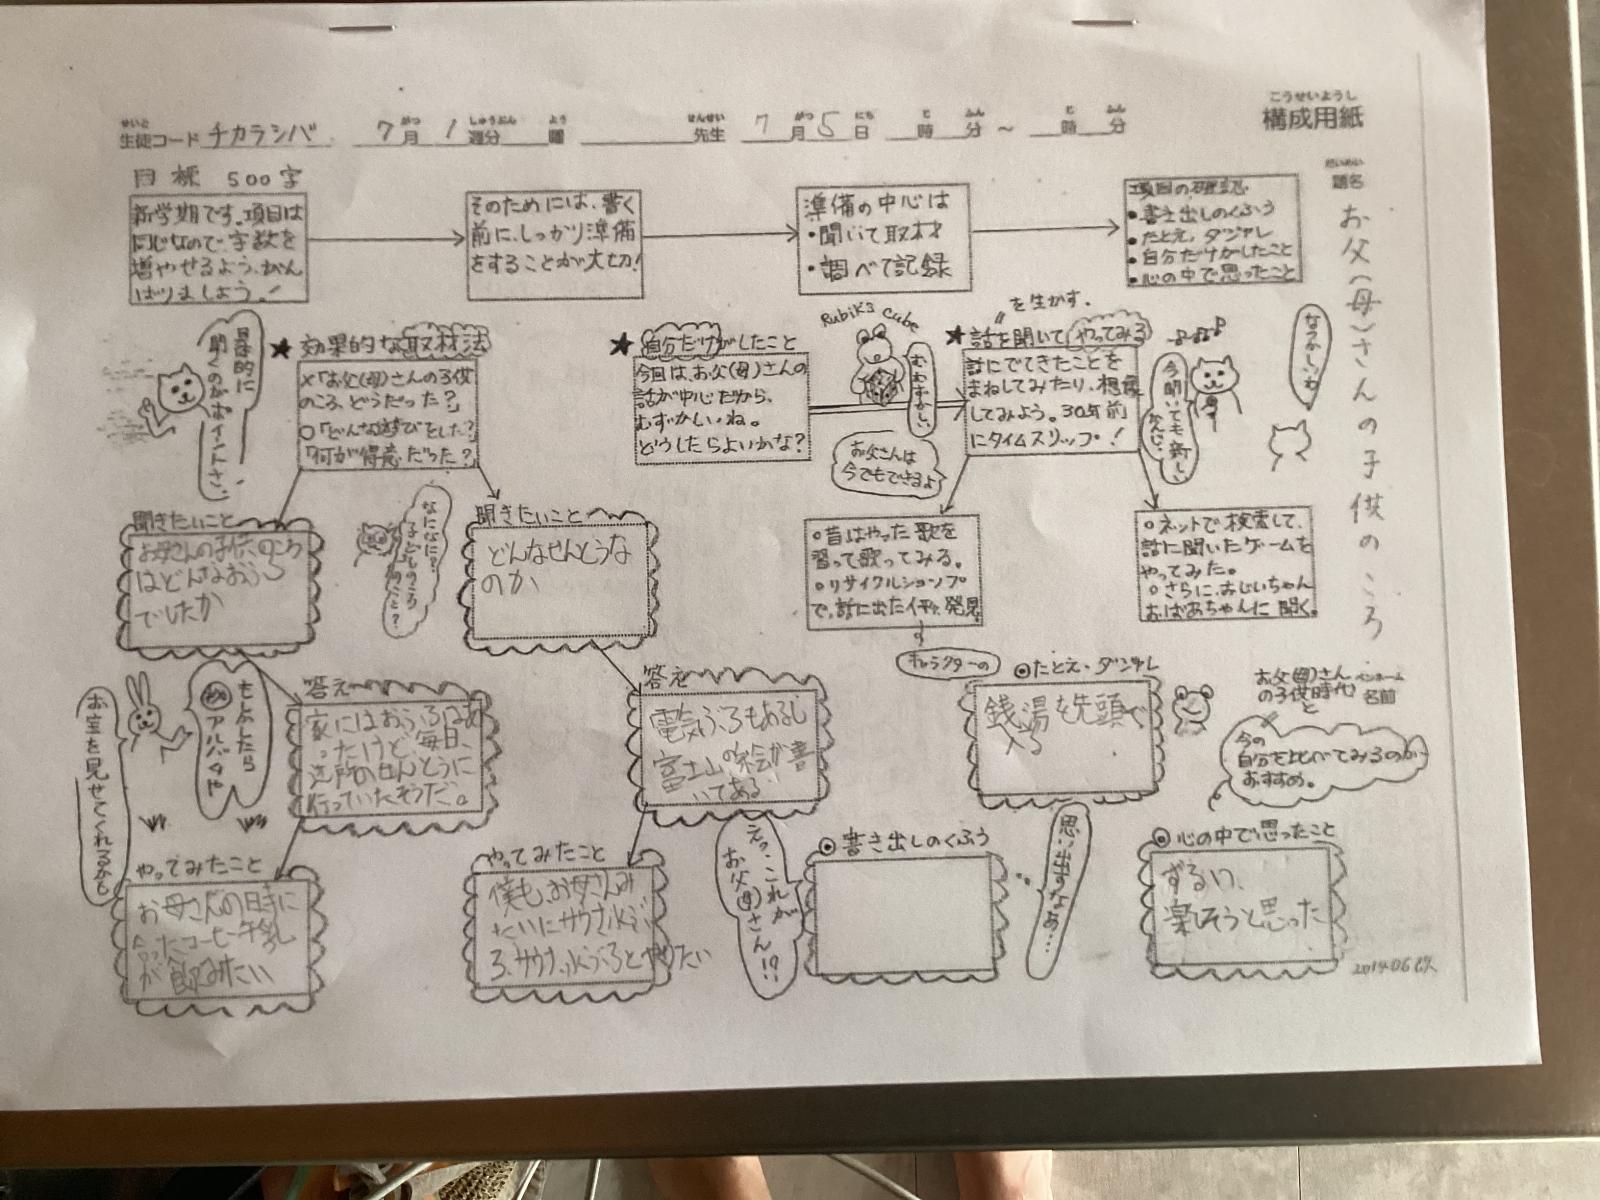 こうせいようし
構成用紙
せいと がつ しゅうぶん よう せんせい がつ にち じ ふん じ ふん
生徒コード チカラシバ 7月 1 週分 曜 先生 7月5日 時 分 ~ 時 分
だいめい
題名
お父(母)さんの子供のころ
目標 500字
新学期です。項目は
同じなので、字数を
増やせるよう、がん
ばりましょう。!
そのためには、書く
前に、しっかり準備
をすることが大切!
準備の中心は
・聞いて取材
・調べて記録
項目の確認
・書き出しのくふう
・たとえ、ダジャレ
・自分だけがしたこと
・心の中で思ったこと
具体的に
聞くのがポイントさ。
★効果的な取材法
×「お父(母)さんの子供
のころ、どうだった?」
○「どんな遊びをした?」
「何が得意だった?」
★自分だけがしたこと
今回は、お父(母)さんの
話が中心だから、
むずかしいね。
どうしたらよいかな?
Rubik's cube
むむずかしい
お父さんは
今でもできるよ
〃を生かす.
★話を聞いてやってみる
話にでてきたことを
まねしてみたり、想像
してみよう。30年前
にタイムスリップ!
今聞いても新しい
かんじ♪
なつかしいわ
聞きたいこと
お母さんの子供のころ
はどんなおふろ
でしたか
なになに?
子どものころ
のこと?
聞きたいこと
どんなせんとうな
のか
○昔はやった歌を
習って歌ってみる。
○リサイクルショップ
で、話に出た 発見
キャラクターの
○ネットで検索して、
話に聞いたゲームを
やってみた。
○さらに、おじいちゃん
おばあちゃんに聞く。
もしかしたら
アルバムや
お宝を見せてくれるかも
答え
家にはおふろはあ
ったけど、毎日、
近所のせんとうに
行っていたそうだ。
答え
電気ぶろもあるし
富士山の絵が書
いてある
◎たとえ・ダジャレ
銭湯を先頭で
入る
お父(母)さん
の子供時代と
ペンネーム
名前
今の
自分を比べてみるのが
おすすめ。
やってみたこと
お母さんの日時に
あったコーヒー牛乳
が飲みたい
やってみたこと
僕も、お母さんみ
たいにサウナ水ぶ
ろ、サウナ、水ぶろとやりたい
えっ、これが
お父(母)さん!?
◎書き出しのくふう
思い出すなぁ…
◎心の中で思ったこと
ずるい、
楽しそうと思った
2014.06